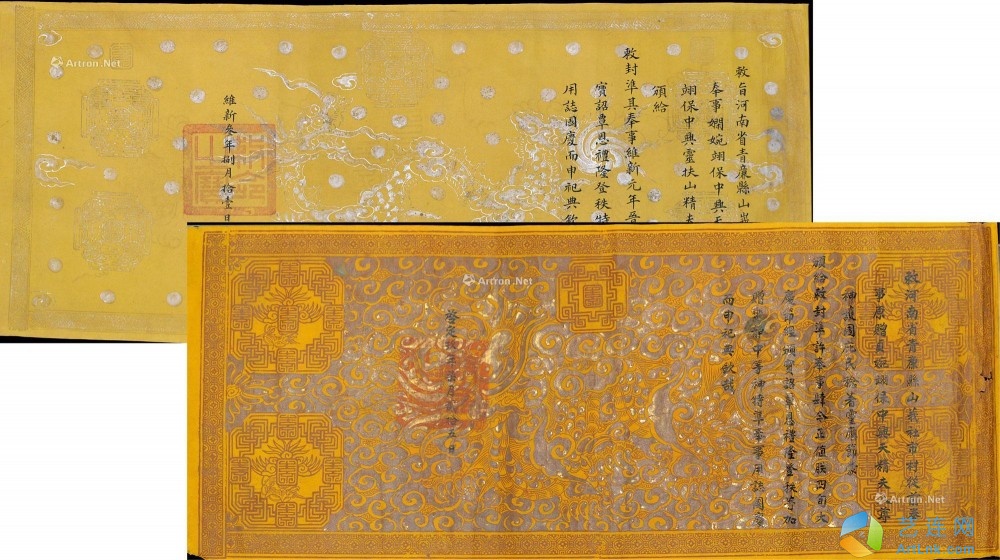 敕旨河南省青廉縣山
奉事嫻婉翊保中興天
翊保中興靈扶山精夫
頒給
敕封準其奉事維新元年晉
寶詔覃恩禮隆登秩特
用誌國慶而申祀典欽
維新叄年捌月拾壹日
Artron.Net
Artron.Net
敕河南省青廉縣山義社市村從前奉
事原贈貞婉翊保中興天精夫尊
神護國庇民稔著靈應節蒙
頒給敕封準許奉事肆今正值朕四旬大
慶節經頒寶詔覃恩禮隆登秩著加
贈中等神特準奉事用誌國慶
而申祀典欽哉
啓定玖年柒月貳拾五日
Artron.Net
Artron.Net